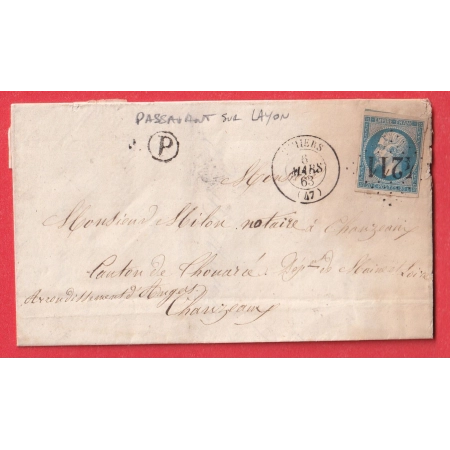 PASSAVANT SUR LAYON
P
HIERS
6
MARS
63
(47)
EMPIRE FRANC
1211
Monsieur
Monsieur Milon notaire à Chanzeaux
Canton de Thouarcé. Dépt. de Maine et Loire
Arrondissement d'Angers
Chanzeaux